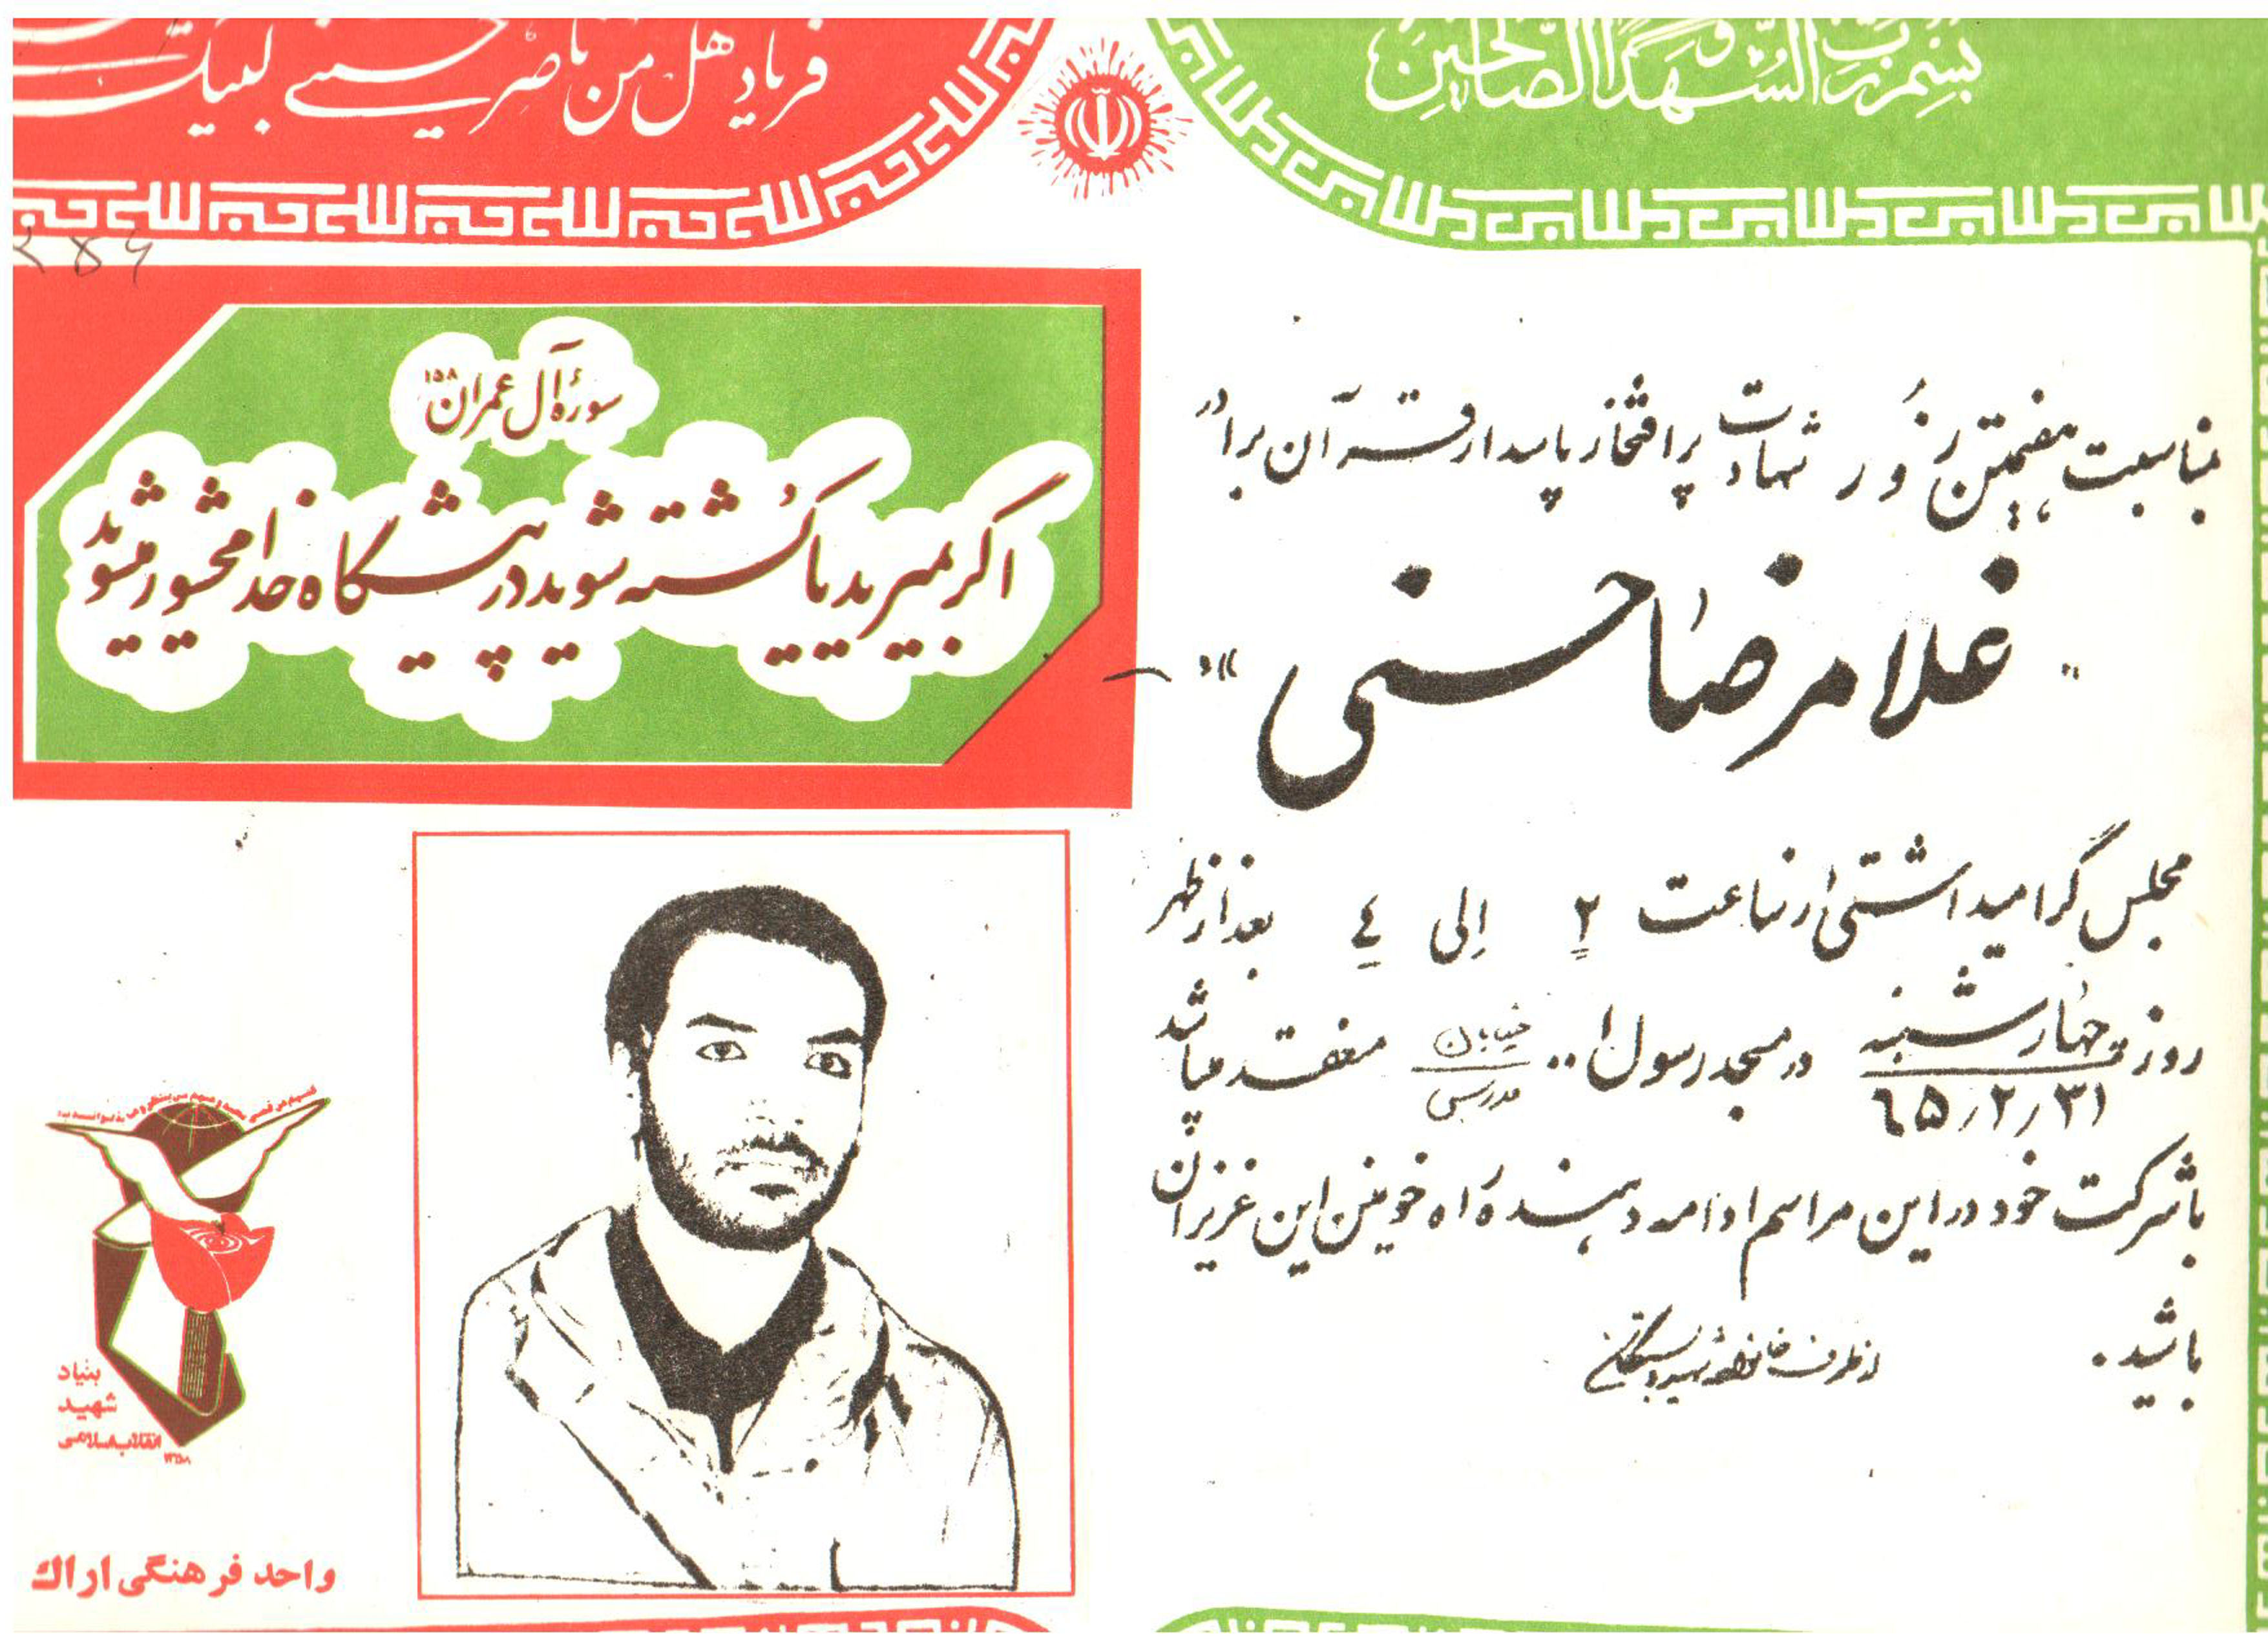 بسم رب الشهدا و الصالحین
فریاد هل من ناصر حسینی لبیک
سورهٔ آل عمران ۱۵۸
اگر بمیرید یا کُشته شوید در پیشگاه خدا محشور میشوید
بمناسبت هفتمین روز شهادت پرافتخار پاسدار قرآن برادر
" غلامرضا حسنی "
مجلس گرامیداشتی از ساعت ۲ الی ٤ بعد از ظهر
روز چهارشنبه ۶۵/۲/۳۱ در مسجد رسول ا.. خیابان مدرس منعقد میباشد
با شرکت خود در این مراسم ادامه دهنده راه خونین این عزیزان
باشید.
از طرف خانواده شهید و بستگان
بنیاد
شهید
انقلاب اسلامی
واحد فرهنگی اراك